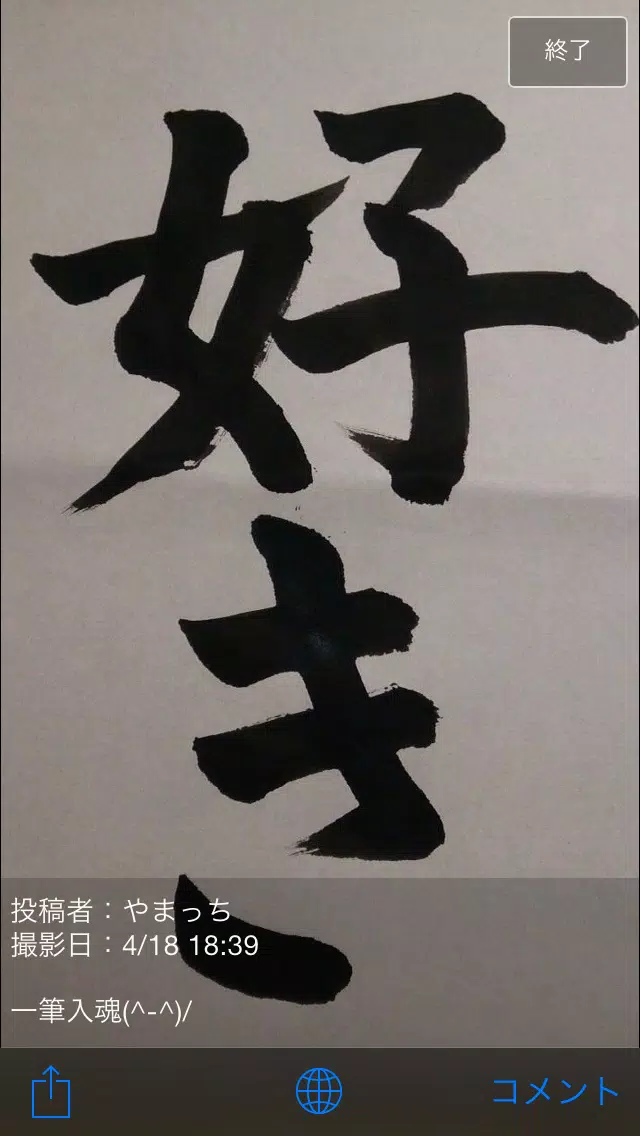 終了
好き
投稿者：やまっち
撮影日：4/18 18:39
一筆入魂(^-^)/
コメント